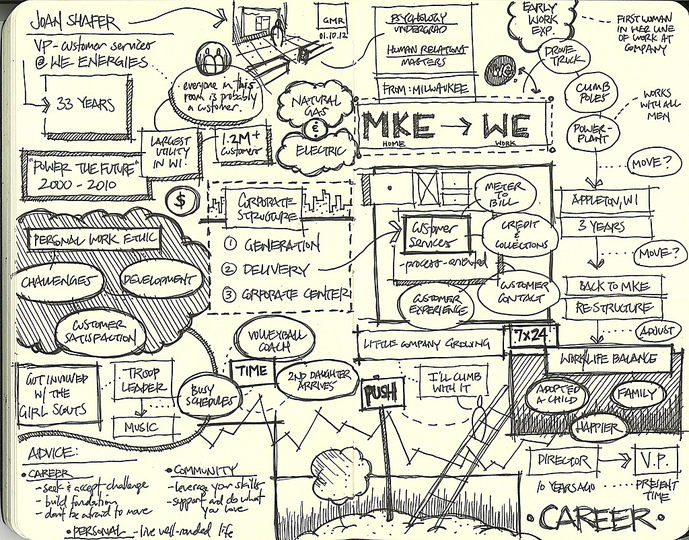 JOAN SHAFER
VP - customer services
@ WE ENERGIES
33 YEARS
GMR
01.10.12
everyone in this
room is probably
a customer.
LARGEST
UTILITY
IN WI
1.2M+
customers
NATURAL
GAS
&
ELECTRIC
"POWER THE FUTURE"
2000 - 2010
$
PSYCHOLOGY
UNDERGRAD
HUMAN RELATIONS
MASTERS
FROM: MILWAUKEE
MKE → WE
HOME
WORK
EARLY
WORK
EXP.
FIRST WOMAN
IN HER LINE
OF WORK AT
COMPANY
WE
DROVE
TRUCK
CLIMB
POLES
WORKS
WITH ALL
MEN
POWER-
PLANT
MOVE?
APPLETON, WI
3 YEARS
MOVE?
BACK TO MKE
RE-STRUCTURE
ADJUST
CORPORATE
STRUCTURE
1 GENERATION
2 DELIVERY
3 CORPORATE CENTER
METER
TO
BILL
CUSTOMER
SERVICES
-process-oriented
CREDIT
&
COLLECTIONS
CUSTOMER
CONTACT
CUSTOMER
EXPERIENCE
7x24
LITTLE COMPANY GROWING
PERSONAL WORK ETHIC
CHALLENGES
DEVELOPMENT
CUSTOMER
SATISFACTION
GOT INVOLVED
W/ THE
GIRL SCOUTS
TROOP
LEADER
MUSIC
BUSY
SCHEDULES
VOLLEYBALL
COACH
TIME
2ND DAUGHTER
ARRIVES
PUSH
I'LL CLIMB
WITH IT
WORK/LIFE BALANCE
ADOPTED
A CHILD
FAMILY
HAPPIER
DIRECTOR → V.P.
10 YEARS AGO
PRESENT
TIME
• CAREER •
ADVICE:
• CAREER
- seek & accept challenge
- build foundation
- don't be afraid to move
• COMMUNITY
- leverage your skills
- support and do what
you love
• PERSONAL - live well-rounded life